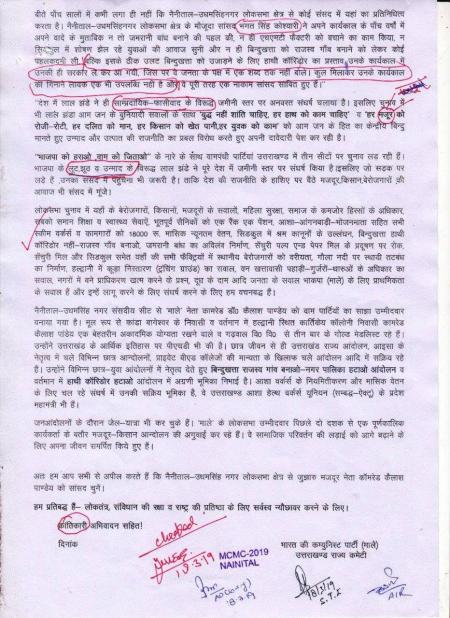 बीते पांच सालों में कभी लगा ही नहीं कि नैनीताल-उधमसिंहनगर लोकसभा क्षेत्र से कोई संसद में यहां का प्रतिनिधित्व
करता है। नैनीताल-उधमसिंहनगर लोकसभा क्षेत्र के मौजूदा सांसद भगत सिंह कोश्यारी ने अपने कार्यकाल के पांच वर्षों में
अपने वादे के मुताबिक न तो जमरानी बांध बनाने की पहल की, न ही एचएमटी फैक्टरी को बचाने का काम किया, न
सिडकुल में शोषण झेल रहे युवाओं की आवाज सुनी और न ही बिन्दुखत्ता को राजस्व गाँव बनाने को लेकर कोई
पहलकदमी ली, बल्कि इसके ठीक उलट बिन्दुखत्ता को उजाड़ने के लिए हाथी कॉरिडोर का प्रस्ताव, उनके कार्यकाल में
उनकी ही सरकार ले कर आ गयी, जिस पर वे जनता के पक्ष में एक शब्द तक नहीं बोले। कुल मिलाकर उनके कार्यकाल
की गिनाने लायक एक भी उपलब्धि नहीं है और वे पूरी तरह एक नाकाम सांसद साबित हुए हैं।
"देश में लाल झंडे ने ही साम्प्रदायिक-फासीवाद के विरूद्ध जमीनी स्तर पर अनवरत संघर्ष चलाया है। इसलिए चुनाव में
भी लाल झंडा आम जन के बुनियादी सवालों के साथ 'युद्ध नहीं शांति चाहिए, हर हाथ को काम चाहिए' व 'हर मजूर को
रोजी-रोटी, हर दलित को मान, हर किसान को खेत पानी,हर युवक को काम' को आम जन के हित का केन्द्रीय बिन्दु
मानते हुए उन्माद और उत्पात की राजनीति का प्रबल विरोध करते हुए अपनी दावेदारी पेश कर रही है।
"भाजपा को हराओ ,वाम को जिताओ" के नारे के साथ वामपंथी पार्टियां उत्तराखण्ड में तीन सीटों पर चुनाव लड़ रही हैं।
भाजपा के लूट,झूठ व उन्माद के विरूद्ध लाल झंडे ने पूरे देश में जमीनी स्तर पर संघर्ष किया है।इसलिए जो सड़क पर
लड़े हैं ,उनका संसद में पहुँचना भी जरूरी है। ताकि देश की राजनीति के हाशिए पर बैठे मजदूर,किसान,बेरोजगारों की
आवाज भी संसद में गूंजे।
लोकसभा चुनाव में यहाँ के बेरोजगारों, किसानों, मजदूरों के सवालों, महिला सुरक्षा, समाज के कमजोर हिस्सों के अधिकार,
सबको समान शिक्षा व स्वास्थ्य सेवाऐं, भूतपूर्व सैनिकों को एक रैंक एक पेंशन, आशा-आंगनबाड़ी-भोजनमाता सहित सभी
स्कीम वर्कर्स व कामगारों को 18000 रू. मासिक न्यूनतम वेतन, सिडकुल में श्रम कानूनों के उल्लंघन, बिन्दुखत्ता हाथी
कॉरिडोर नहीं-राजस्व गाँव बनाओ, जमरानी बांध का अविलंब निर्माण, सेंचुरी पल्प एण्ड पेपर मिल के प्रदूषण पर रोक,
सेंचुरी मिल और सिडकुल समेत यहाँ की सभी फैक्ट्रियों में स्थानीय बेरोजगारों को वरीयता, गौला नदी पर स्थायी तटबंध
का निर्माण, हल्द्वानी में कूड़ा निस्तारण (ट्रंचिंग ग्राउंड) का सवाल, वन खत्तावासी पहाड़ी-गुर्जरों-थारूओं के अधिकार का
सवाल, नगरों में बने प्राधिकरण खत्म करने के प्रश्न, दूध के दाम आदि जनता के सवाल भाकपा (माले) के लिए प्राथमिकता
के सवाल हैं और इन्हें लागू करने के लिए संघर्ष करने के लिए हम वचनबद्ध हैं।
नैनीताल-उधमसिंह नगर संसदीय सीट से 'माले' नेता कामरेड डॉ० कैलाश पाण्डेय को वाम पार्टियों का साझा उम्मीदवार
बनाया गया है। मूल रूप से कांडा बागेश्वर के निवासी व वर्तमान में हल्द्वानी स्थित कार्तिकेय कॉलोनी निवासी कामरेड
कैलाश पांडेय एक बेहतरीन अकादमिक योग्यता रखने वाले व गढ़वाल वि० वि० से तीन बार के गोल्ड मेडलिस्ट रहे हैं।
उन्होंने उत्तराखण्ड के आर्थिक इतिहास पर पीएचडी भी की है। छात्र जीवन से ही उत्तराखण्ड राज्य आंदोलन, आइसा के
नेतृत्व में चले विभिन्न छात्र आन्दोलनों, प्राइवेट बीएड कॉलेजों की मान्यता के खिलाफ चले आंदोलन आदि में सक्रिय रहे
हैं। उन्होंने विभिन्न छात्र-युवा आंदोलनों में नेतृत्व देते हुए बिन्दुखत्ता राजस्व गांव बनाओ-नगर पालिका हटाओ आंदोलन व
वर्तमान में हाथी कॉरिडोर हटाओ आंदोलन में अग्रणी भूमिका निभाई है। आशा वर्कर्स के नियमितीकरण और मासिक वेतन
के लिए चल रहे संघर्ष में उनकी सक्रिय भूमिका है, वे उत्तराखण्ड आशा हेल्थ वर्कर्स यूनियन (सम्बद्ध-ऐक्टू) के प्रदेश
महामंत्री भी हैं।
जनआंदोलनों के दौरान जेल-यात्रा भी कर चुके हैं। 'माले' के लोकसभा उम्मीदवार पिछले दो दशक से एक पूर्णकालिक
कार्यकर्ता के बतौर मजदूर-किसान आन्दोलन की अगुवाई कर रहे हैं। वे सामाजिक परिवर्तन की लड़ाई को आगे बढ़ाने के
लिए अपना जीवन समर्पित किये हुए हैं।
अतः हम आप सभी से अपील करते हैं कि नैनीताल-उधमसिंह नगर लोकसभा क्षेत्र से जुझारू मजदूर नेता कॉमरेड कैलाश
पाण्डेय को सांसद चुनें।
हम प्रतिबद्ध हैं- लोकतंत्र, संविधान की रक्षा व राष्ट्र की प्रतिष्ठा के लिए सर्वस्व न्यौछावर करने के लिए।
क्रांतिकारी अभिवादन सहित!
दिनांक
भारत की कम्युनिस्ट पार्टी (माले)
उत्तराखण्ड राज्य कमेटी
checked
18.3.19
MCMC-2019
NAINITAL
18/3/19
AIR